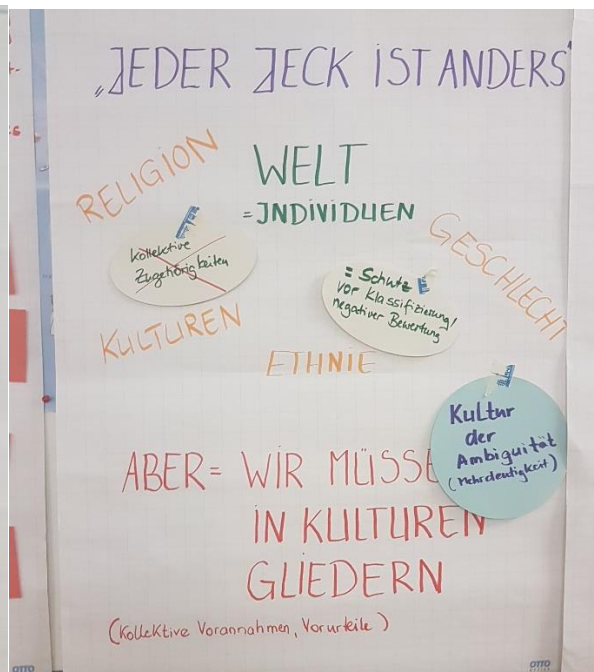 „JEDER JECK IST ANDERS"
RELIGION
WELT
= INDIVIDUEN
Kollektive
Zugehörigkeiten
GESCHLECHT
= Schutz
vor Klassifizierung/
negativer Bewertung
KULTUREN
ETHNIE
Kultur
der
Ambiguität
(Mehrdeutigkeit)
ABER= WIR MÜSSE
IN KULTUREN
GLIEDERN
(Kollektive Vorannahmen, Vorurteile)
OTTO
OTTO
OFFICE